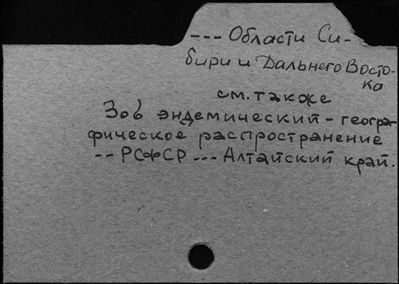 --- Области Си-
бири и Дальнего Восто-
ка
см. также
Зоб эндемический - геогра-
фическое распространение
-- РСФСР --- Алтайский край.